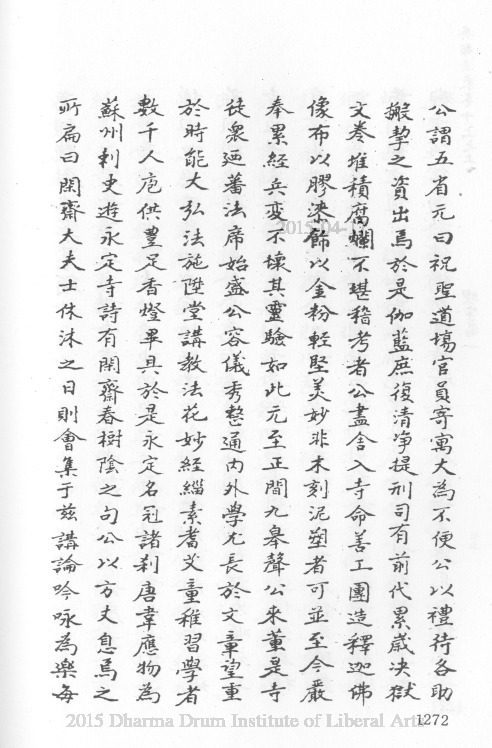 公謂五省元曰祝聖道場官員寄寓大為不便公以禮待各助
搬挈之資出焉於是伽藍庶復清淨提刑司有前代累歲決獄
文卷堆積腐爛不堪稽考者公盡舍入寺命善工團造釋迦佛
像布以膠漆飾以金粉輕堅美妙非木刻泥塑者可並至今嚴
奉累經兵變不壞其靈驗如此元至正間九皋聲公來董是寺
徒衆廼蕃法席始盛公容儀秀整通內外學尤長於文章望重
於時能大弘法施陞堂講教法花妙經緇素耆艾童稚習學者
數千人庖供豊足香燈畢具於是永定名冠諸刹唐韋應物為
蘇州刺史遊永定寺詩有閑齋春樹陰之句公以方丈息焉之
所扁曰閑齋大夫士休沐之日則會集于茲講論吟咏為樂每
2015-04-1
2015 Dharma Drum Institute of Liberal Arts
1272